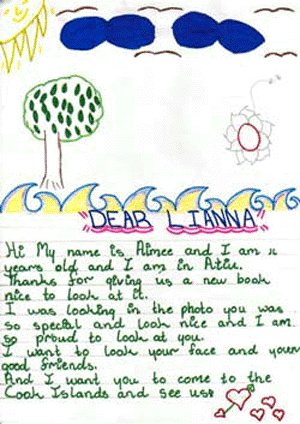 "DEAR LIANNA"
Hi My name is Aimee and I am
years old and I am in Atiu.
Thanks for giving us a new book
nice to look at it.
I was looking in the photo you was
so special and look nice and I am
so proud to look at you.
I want to look your face and your
good friends.
And I want you to come to the
Cook Islands and see us